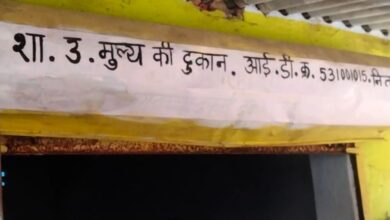 शा. उ. मुल्य की दुकान. आई.डी.क्र. 531001015.